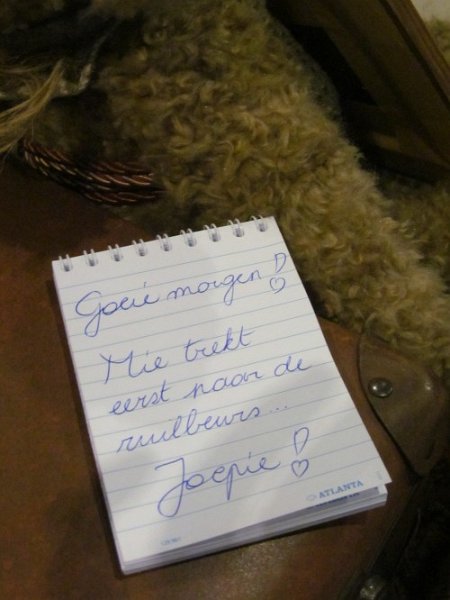 Goeie morgen!
Mie trekt
eerst naar de
ruilbeurs...
Joepie!
ATLANTA